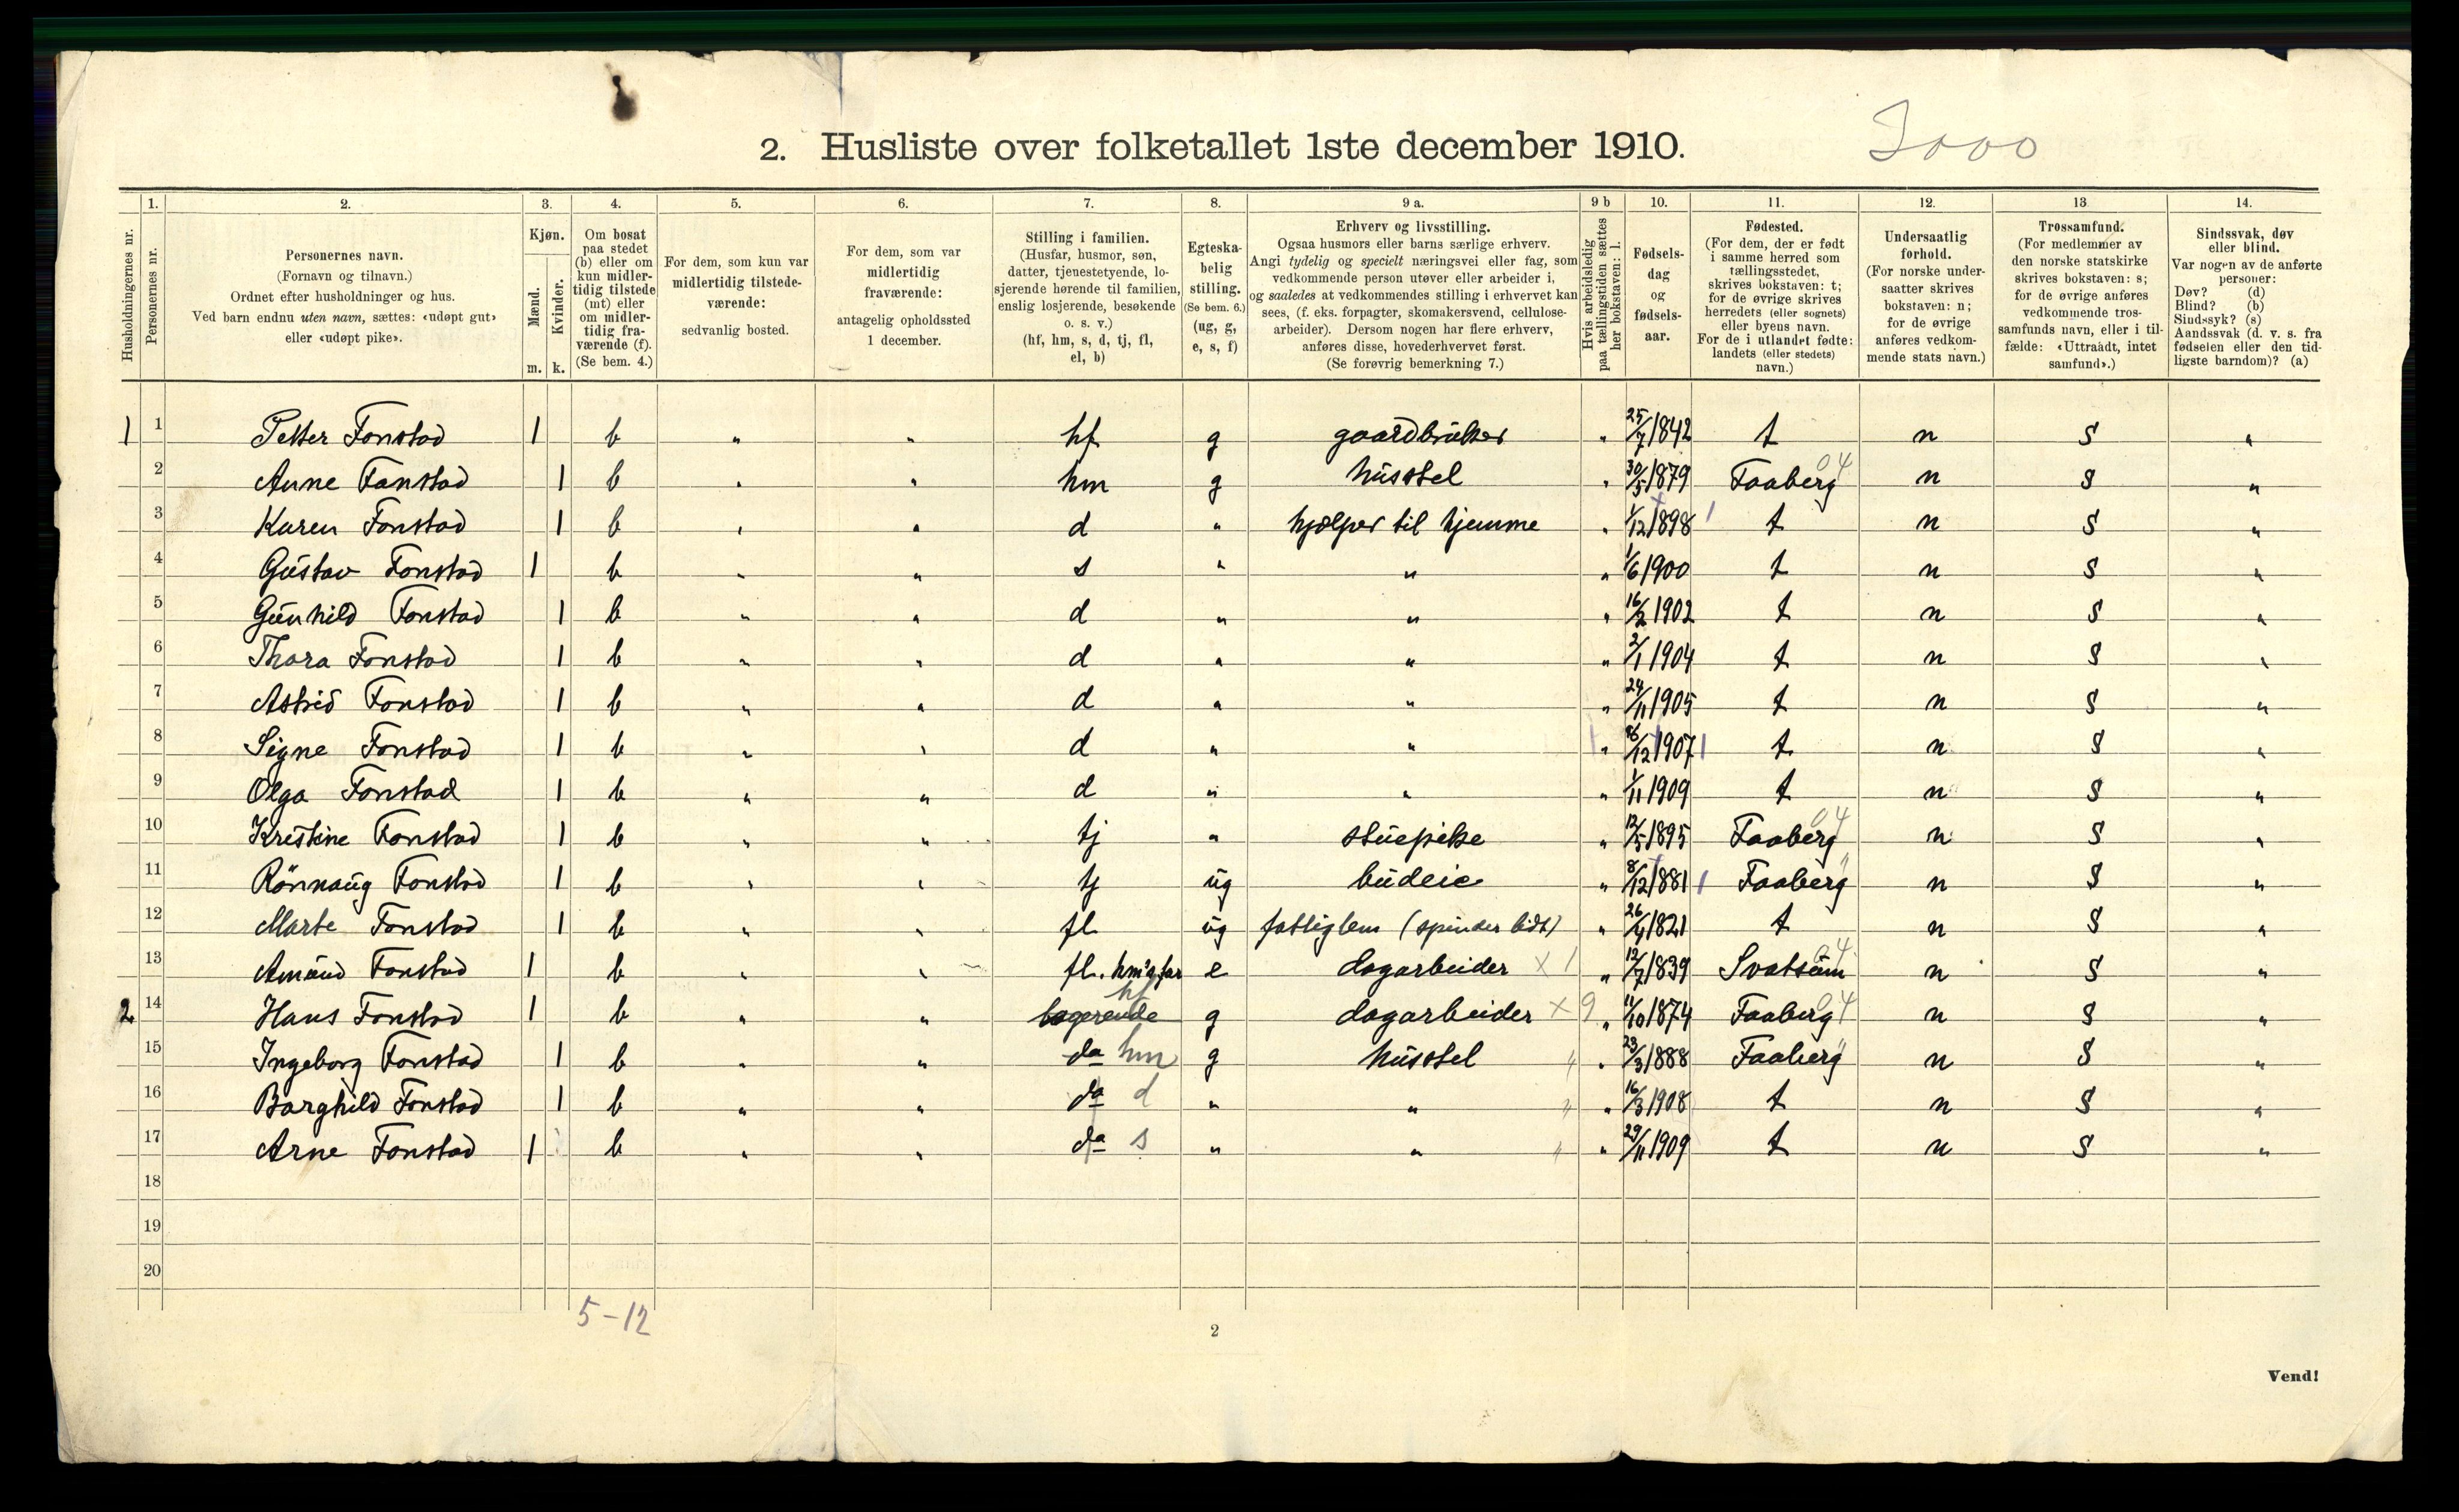 2. Husliste over folketallet 1ste december 1910.
Husholdningernes nr.
1.
Personernes nr.
2.
Personernes navn.
(Fornavn og tilnavn.)
Ordnet efter husholdninger og hus.
Ved barn endnu uten navn, sættes: «udøpt gut»
eller «udøpt pike».
3.
Kjøn.
Mænd.
Kvinder.
m. k.
4.
Om bosat
paa stedet
(b) eller om
kun midler-
tidig tilstede
(mt) eller
om midler-
tidig fra-
værende (f).
(Se bem. 4.)
5.
For dem, som kun var
midlertidig tilstede-
værende:
sedvanlig bosted.
6.
For dem, som var
midlertidig
fraværende:
antagelig opholdssted
1 december.
7.
Stilling i familien.
(Husfar, husmor, søn,
datter, tjenestetyende, lo-
sjerende hørende til familien,
enslig losjerende, besøkende
o. s. v.)
(hf, hm, s, d, tj, fl,
el, b)
8.
Egteska-
belig
stilling.
(Se bem. 6.)
(ug, g,
e, s, f)
9 a.
Erhverv og livsstilling.
Ogsaa husmors eller barns særlige erhverv.
Angi tydelig og specielt næringsvei eller fag, som
vedkommende person utøver eller arbeider i,
og saaledes at vedkommendes stilling i erhvervet kan
sees, (f. eks. forpagter, skomakersvend, cellulose-
arbeider). Dersom nogen har flere erhverv,
anføres disse, hovederhvervet først.
(Se forøvrig bemerkning 7.)
9 b
Hvis arbeidsledig
paa tællingstiden sættes
her bokstaven: l.
10.
Fødsels-
dag
og
fødsels-
aar.
11.
Fødested.
(For dem, der er født
i samme herred som
tællingsstedet,
skrives bokstaven: t;
for de øvrige skrives
herredets (eller sognets)
eller byens navn.
For de i utlandet fødte:
landets (eller stedets)
navn.)
12.
Undersaatlig
forhold.
(For norske under-
saatter skrives
bokstaven: n;
for de øvrige
anføres vedkom-
mende stats navn.)
13
Trossamfund.
(For medlemmer av
den norske statskirke
skrives bokstaven: s;
for de øvrige anføres
vedkommende tros-
samfunds navn, eller i til-
fælde: «Uttraadt, intet
samfund».)
14.
Sindssvak, døv
eller blind.
Var nogen av de anførte
personer:
Døv? (d)
Blind? (b)
Sindssyk? (s)
Aandssvak (d. v. s. fra
fødselen eller den tid-
ligste barndom)? (a)
1 1 Petter Fonstad 1 b " " hf g gaardbruker " 25/7 1842 t n S "
2 Anne Fonstad 1 b " " hm g husstel " 30/5 1879 Faaberg 04 n S "
3 Karen Fonstad 1 b " " d " hjælper til hjemme " 1/12 1898 t n S "
4 Gustav Fonstad 1 b " " s " " " 1/6 1900 t n S "
5 Gunhild Fonstad 1 b " " d " " " 16/2 1902 t n S "
6 Thora Fonstad 1 b " " d " " " 2/1 1904 t n S "
7 Astrid Fonstad 1 b " " d " " " 24/11 1905 t n S "
8 Signe Fonstad 1 b " " d " " " /12 1907 t n S "
9 Olga Fonstad 1 b " " d " " " 1/11 1909 t n S "
10 Kristine Fonstad 1 b " " tj " stuepike " 12/5 1895 Faaberg 04 n S "
11 Rönnaug Fonstad 1 b " " tj ug budeie " 8/12 1881 Faaberg " n S "
12 Marte Fonstad 1 b " " fl ug fattiglem (spinder lidt) " 26/4 1821 t n S "
13 Amund Fonstad 1 b " " fl. hm's far e dagarbeider x 1 " 12/7 1839 Svatsum 04 n S "
2 14 Hans Fonstad 1 b " " logerende hf g dagarbeider x 9 " 11/10 1874 Faaberg 04 n S "
15 Ingeborg Fonstad 1 b " " da hm g husstel " " 23/3 1888 Faaberg " n S "
16 Borghild Fonstad 1 b " " da d " " " " 16/3 1908 t n S "
17 Arne Fonstad 1 b " " da s " " " " 29/11 1909 t n S "
18
19
20
5-12
2
Vend!